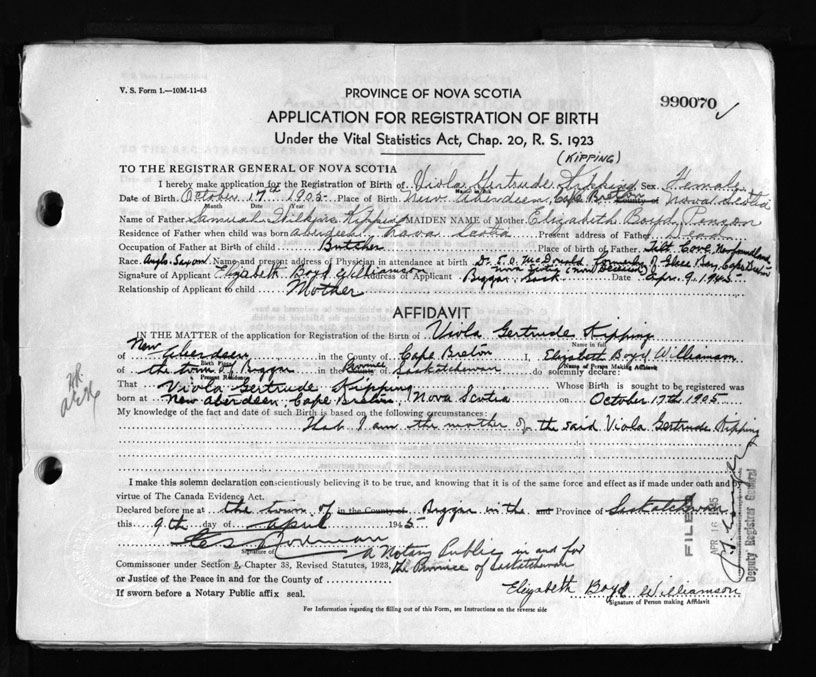 V. S. Form 1.—10M-11-43
PROVINCE OF NOVA SCOTIA
990070
APPLICATION FOR REGISTRATION OF BIRTH
Under the Vital Statistics Act, Chap. 20, R. S. 1923
(KIPPING)
TO THE REGISTRAR GENERAL OF NOVA SCOTIA
I hereby make application for the Registration of Birth of Viola Gertrude Kipping Sex Female
Date of Birth October 17th 1905 Place of Birth New Aberdeen, Cape Breton County of Nova Scotia
Month Date Year
Name of Father Samuel Kipping MAIDEN NAME of Mother Elizabeth Boyd
Residence of Father when child was born Aberdeen, Nova Scotia Present address of Father Dead
Occupation of Father at Birth of child Butcher Place of birth of Father Tilt Cove, Newfoundland
Race Anglo-Saxon Name and present address of Physician in attendance at birth Dr. McDonald formerly of Glace Bay, Cape Breton
Nova Scotia (now Deceased)
Signature of Applicant Elizabeth Boyd Williamson Address of Applicant Biggar, Sask Date Apr. 9. 1945
Relationship of Applicant to child Mother
AFFIDAVIT
IN THE MATTER of the application for Registration of the Birth of Viola Gertrude Kipping
Name in full
of New Aberdeen in the County of Cape Breton I, Elizabeth Boyd Williamson
Birth Place Name of Person Making Affidavit
of the town of Biggar in the Province of Saskatchewan do solemnly declare:
Present Residence
That Viola Gertrude Kipping Whose Birth is sought to be registered was
born at New Aberdeen, Cape Breton, Nova Scotia on October 17th 1905
My knowledge of the fact and date of such Birth is based on the following circumstances:
That I am the mother of the said Viola Gertrude Kipping
I make this solemn declaration conscientiously believing it to be true, and knowing that it is of the same force and effect as if made under oath and by
virtue of The Canada Evidence Act.
Declared before me at the town of in the County of Biggar in the and Province of Saskatchewan
this 9th day of April 1945
Signature of
A Notary Public in and for
Commissioner under Section 5, Chapter 38, Revised Statutes, 1923, the Province of Saskatchewan
or Justice of the Peace in and for the County of
Elizabeth Boyd Williamson
If sworn before a Notary Public affix seal.
Signature of Person making Affidavit
For Information regarding the filling out of this Form, see Instructions on the reverse side
FILED
APR 16
Deputy Registrar General